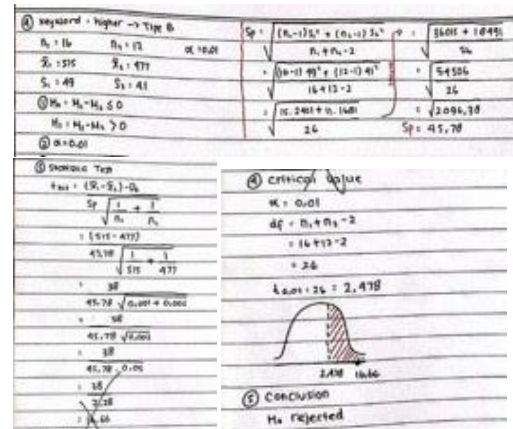 ④ keyword = higher → Tipe B
n₁ = 16 n₂ = 12 α = 0.01
x̄₁ = 515 x̄₂ = 477
S₁ = 49 S₂ = 41
① H₀ = M₁-M₂ ≤ 0
H₁ = M₁-M₂ > 0
② α = 0.01
Sp = √ (n₁-1)S₁² + (n₂-1)S₂² / n₁+n₂-2
= √ (16-1) 49² + (12-1) 41² / 16+12-2
= √ 15.2401 + 11.1681 / 26
= √ 36015 + 18491 / 26
= √ 54506 / 26
= √2096,38
Sp = 45,78
③ Statistic Test
= (x̄₁-x̄₂)-D₀
Sp √ 1/n₁ + 1/n₂
= (515-477)
45,78 √ 1/515 + 1/477
= 38
45,78 √0,001 + 0,002
= 38
45,78 √0,003
= 38
45,78 . 0,05
= 38
2,28
= 16,66
④ critical value
α = 0,01
df = n₁+n₂-2
= 16+12-2
= 26
t 0,01 ; 26 = 2,478
2,478 16,66
⑤ Conclusion
H₀ rejected